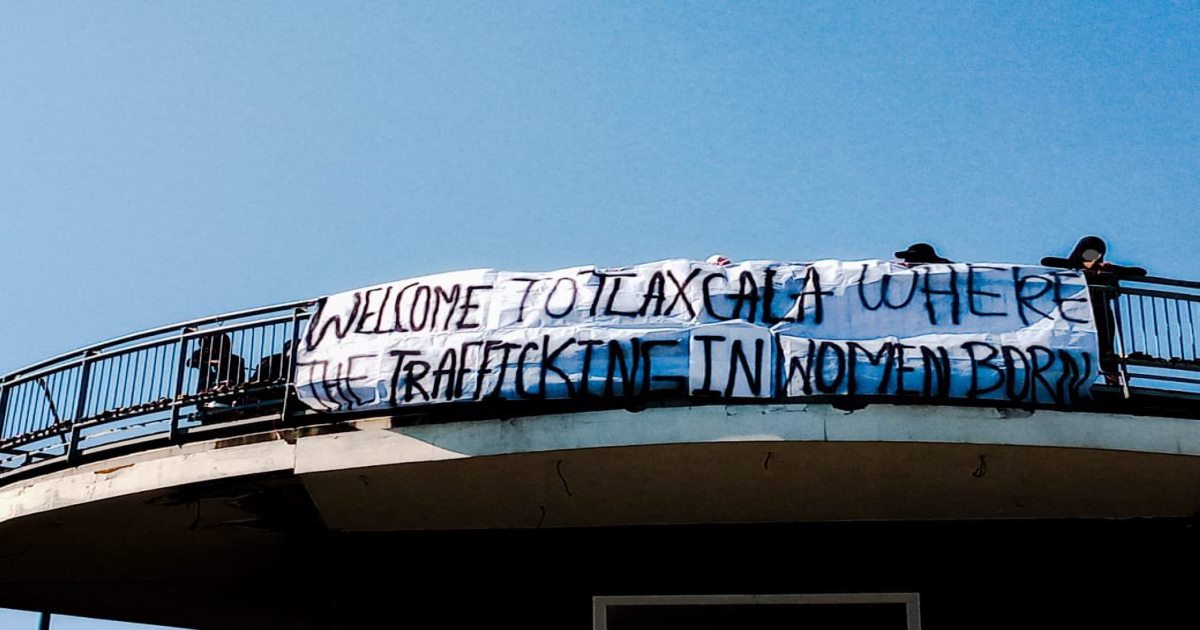 WELCOME TO TLAXCALA WHERE
THE TRAFFICKING IN WOMEN BORN